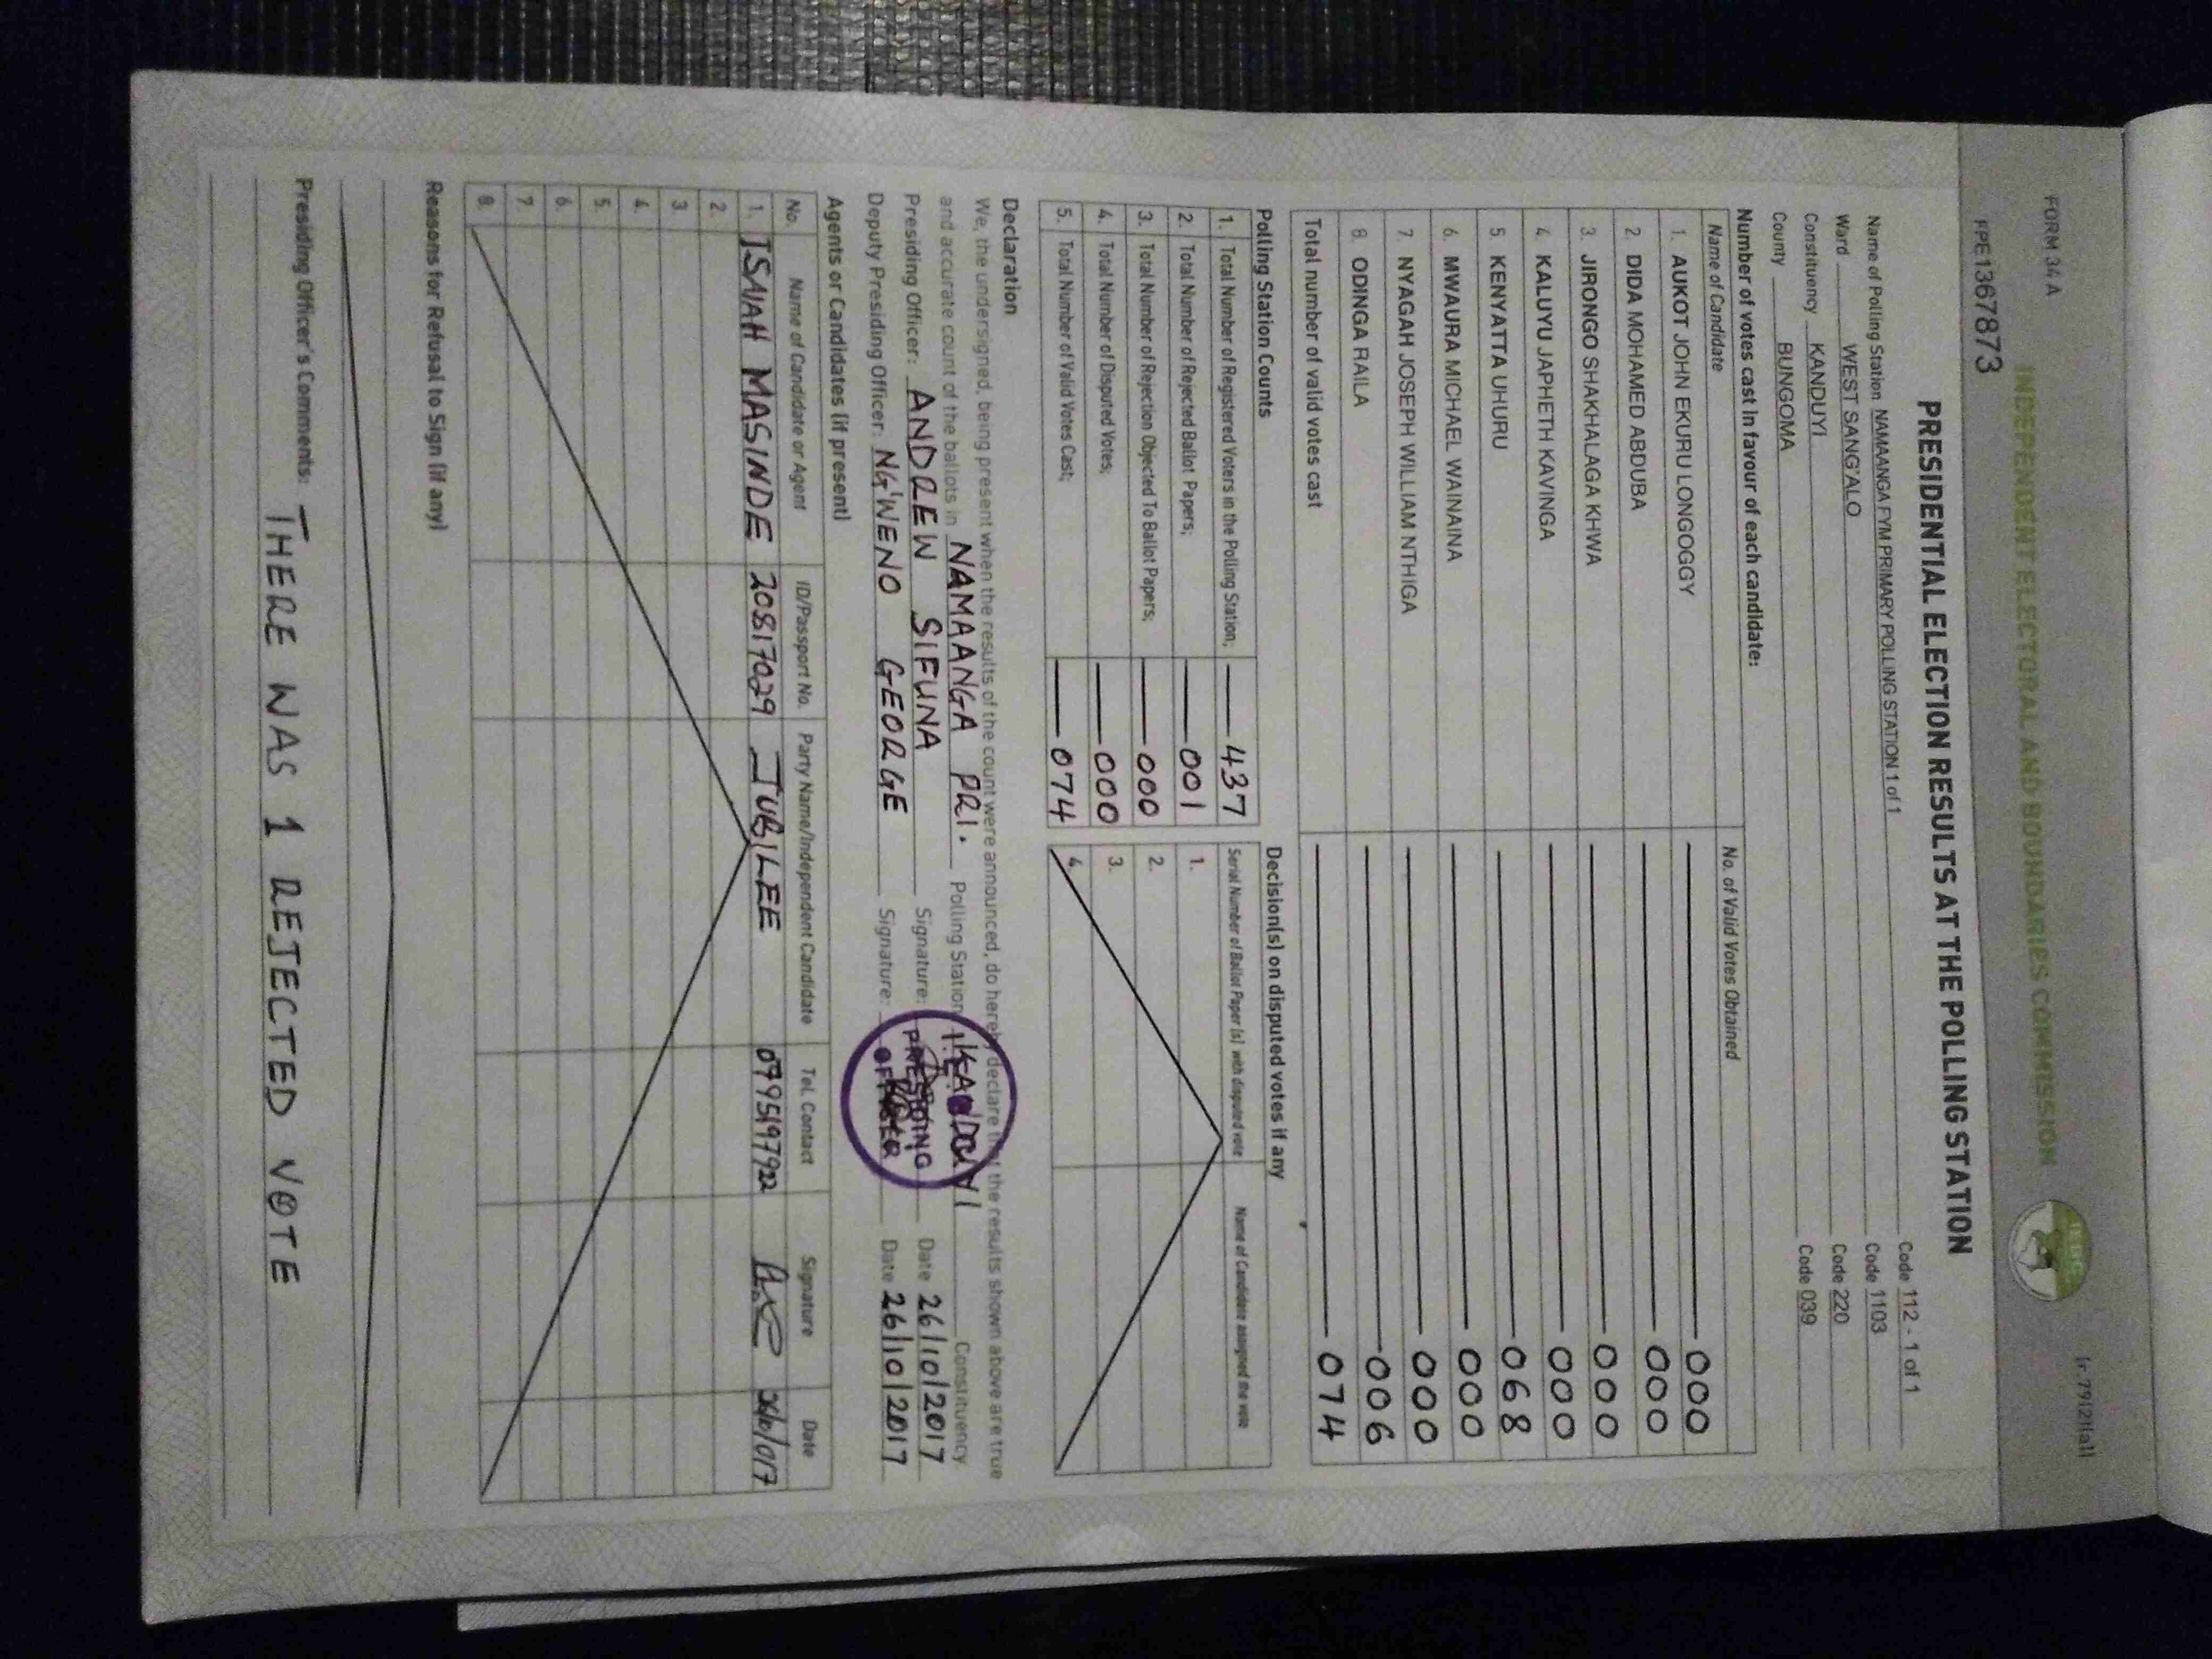 FORM 34 A
INDEPENDENT ELECTORAL AND BOUNDARIES COMMISSION
IEBC
(r.79(2)(a))
PPE1367873
PRESIDENTIAL ELECTION RESULTS AT THE POLLING STATION
Name of Polling Station NAMAANGA FYM PRIMARY POLLING STATION 1 of 1 Code 112 - 1 of 1
Ward WEST SANG'ALO Code 1103
Constituency KANDUYI Code 220
County BUNGOMA Code 039
Number of votes cast in favour of each candidate:
Name of Candidate No. of Valid Votes Obtained
1. AUKOT JOHN EKURU LONGOGGY 000
2. DIDA MOHAMED ABDUBA 000
3. JIRONGO SHAKHALAGA KHWA 000
4. KALUYU JAPHETH KAVINGA 000
5. KENYATTA UHURU 068
6. MWAURA MICHAEL WAINAINA 000
7. NYAGAH JOSEPH WILLIAM NTHIGA 000
8. ODINGA RAILA 006
Total number of valid votes cast 074
Polling Station Counts
1. Total Number of Registered Voters in the Polling Station; 437
2. Total Number of Rejected Ballot Papers; 001
3. Total Number of Rejection Objected To Ballot Papers; 000
4. Total Number of Disputed Votes; 000
5. Total Number of Valid Votes Cast; 074
Decision(s) on disputed votes if any
Serial Number of Ballot Paper (s) with disputed vote Name of Candidate assigned the vote
1.
2.
3.
4.
Declaration
We, the undersigned, being present when the results of the count were announced, do hereby declare that the results shown above are true
and accurate count of the ballots in NAMAANGA PRI. Polling Station, KANDUYI Constituency.
Presiding Officer: ANDREW SIFUNA Signature: Date 26/10/2017
Deputy Presiding Officer: NG'WENO GEORGE Signature: Date 26/10/2017
PRESIDING
OFFICER
Agents or Candidates (if present)
No. Name of Candidate or Agent ID/Passport No. Party Name/Independent Candidate Tel. Contact Signature Date
1. ISAIAH MASINDE 20817029 JUBILEE 0795197922
2.
3.
4.
5.
6.
7.
8.
Reasons for Refusal to Sign (if any)
Presiding Officer's Comments: THERE WAS 1 REJECTED VOTE